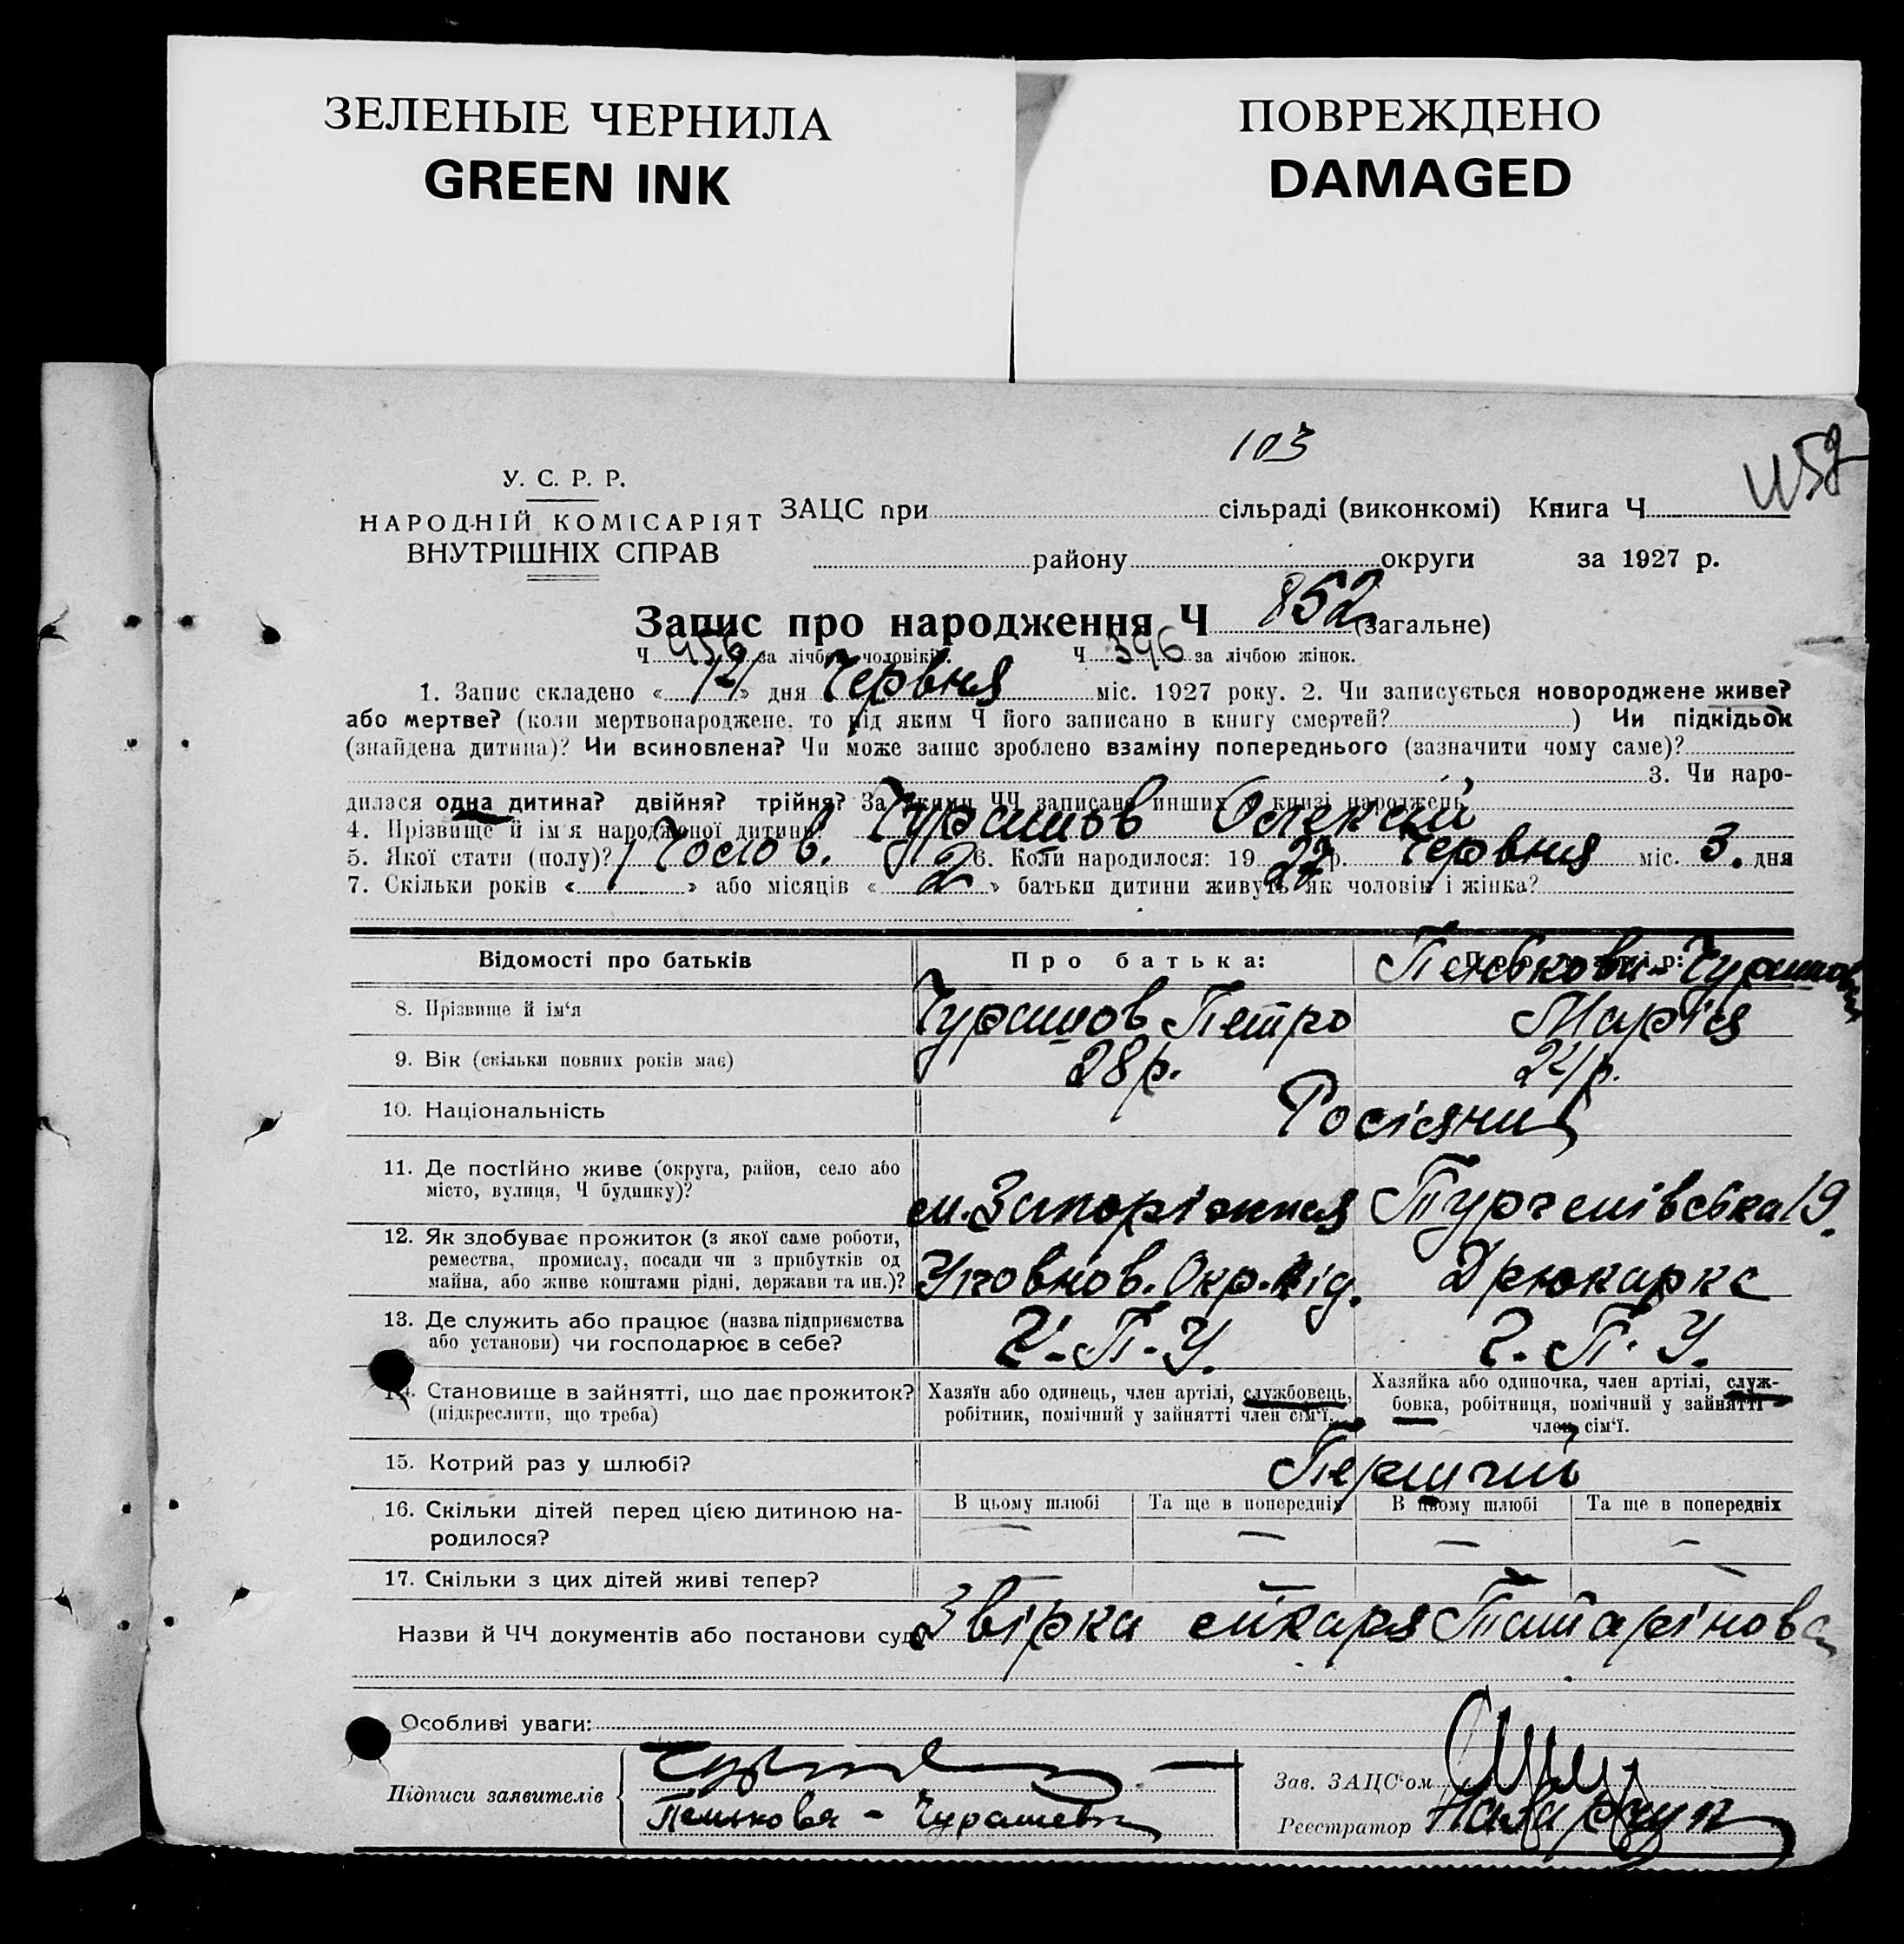 ЗЕЛЕНЫЕ ЧЕРНИЛА
GREEN INK
ПОВРЕЖДЕНО
DAMAGED
103
У. С. Р. Р.
НАРОДНІЙ КОМІСАРІЯТ
ВНУТРІШНІХ СПРАВ
ЗАЦС при сільраді (виконкомі) Книга Ч
району округи за 1927 р.
Запис про народження Ч 852 (загальне)
Ч 456 за лічбою чоловіків. Ч 396 за лічбою жінок.
1. Запис складено « » дня Червня міс. 1927 року. 2. Чи записується новороджене живе?
або мертве? (коли мертвонароджене, то під яким Ч його записано в книгу смертей? ) Чи підкідьок
(знайдена дитина)? Чи всиновлена? Чи може запис зроблено взаміну попереднього (зазначити чому саме)?
3. Чи наро-
дилася одна дитина? двійня? трійня? За якими ЧЧ записано инших у книзі народжень
4. Прізвище й ім'я народженої дитини: Чурашов Олексій
5. Якої стати (полу)? Чолов. 6. Коли народилося: 19 27 р. Червня міс. 3. дня
7. Скільки років « » або місяців « 2 » батьки дитини живуть як чоловік і жінка?
Відомості про батьків Про батька: Про матір:
Пенькова-Чурашова
8. Прізвище й ім'я Чурашов Петро Марія
9. Вік (скільки повних років має) 28 р. 21 р.
10. Національність Росіяни
11. Де постійно живе (округа, район, село або
місто, вулиця, Ч будинку)? м. Запоріжжя Тургенівська 19.
12. Як здобуває прожиток (з якої саме роботи,
ремества, промислу, посади чи з прибутків од
майна, або живе коштами рідні, держави та ин.)? Уповнов. Окр. Від. Дрюкарка
13. Де служить або працює (назва підприємства
або установи) чи господарює в себе? Г. П. У. Г. П. У.
14. Становище в зайнятті, що дає прожиток?
(підкреслити, що треба)
Хазяїн або одинець, член артілі, службовець,
робітник, помічний у зайнятті член сім'ї.
Хазяйка або одиночка, член артілі, служ-
бовка, робітниця, помічний у зайнятті
член сім'ї.
15. Котрий раз у шлюбі? Перший
16. Скільки дітей перед цією дитиною на-
родилося?
В цьому шлюбі Та ще в попередніх В цьому шлюбі Та ще в попередніх
— — — —
17. Скільки з цих дітей живі тепер?
Назви й ЧЧ документів або постанови суду Звірка лікаря Татарінова
Особливі уваги:
Підписи заявителів
Пенькова - Чурашева
Зав. ЗАЦС'ом
Реєстратор